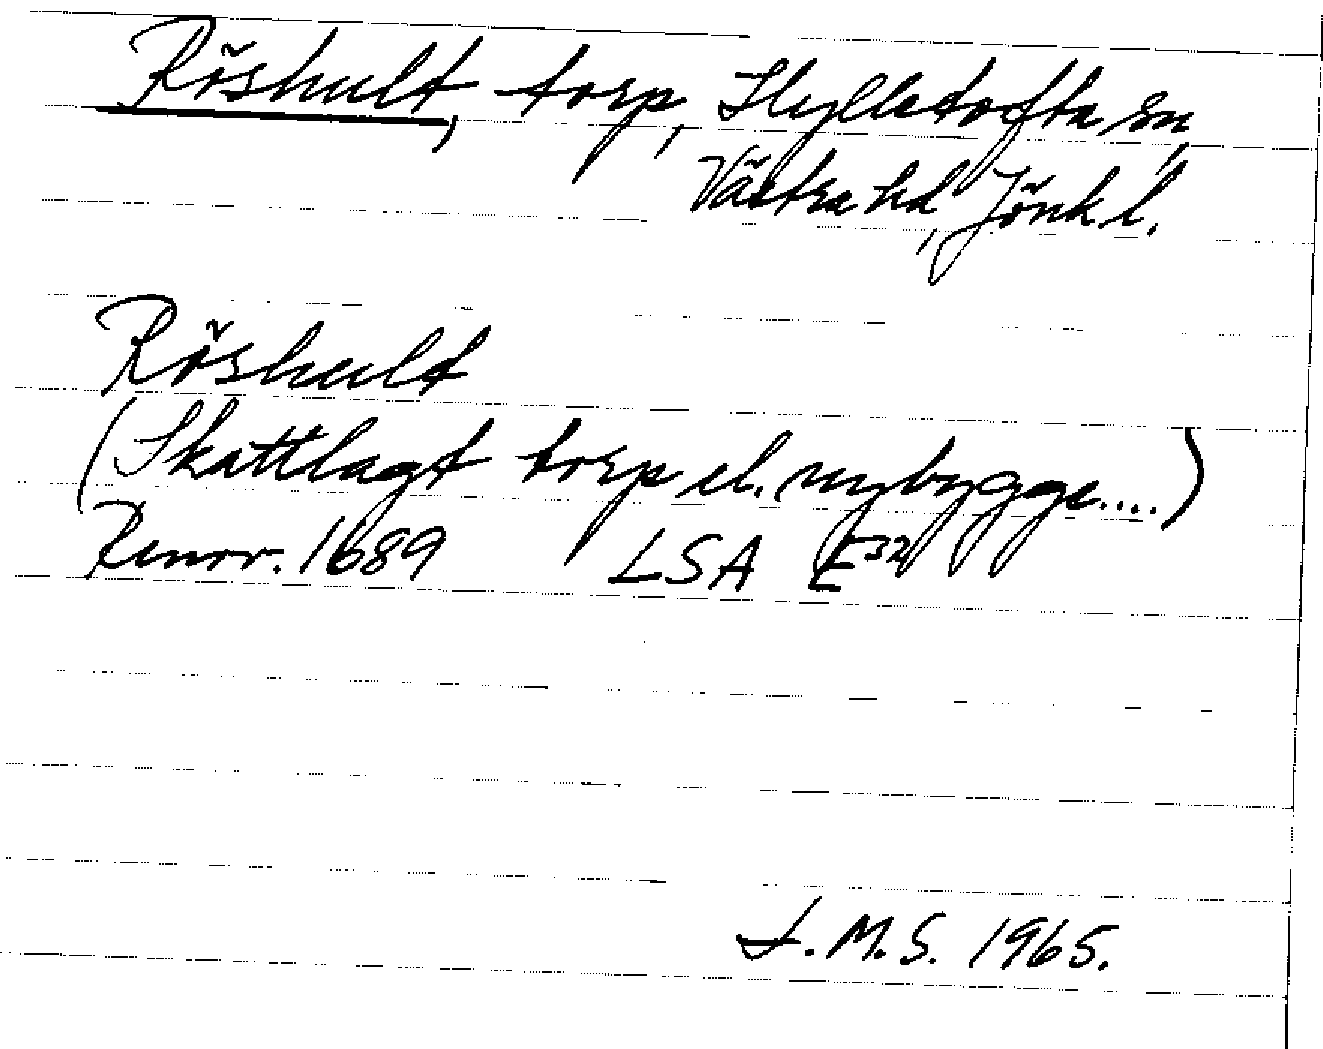 Röshult, torp, Hylletofta sn,
Västra hd, Jönk l.
Röshult
(Skattlagt torp el. nybygge....)
Renov. 1689 LSA E32
I. M. S. 1965.